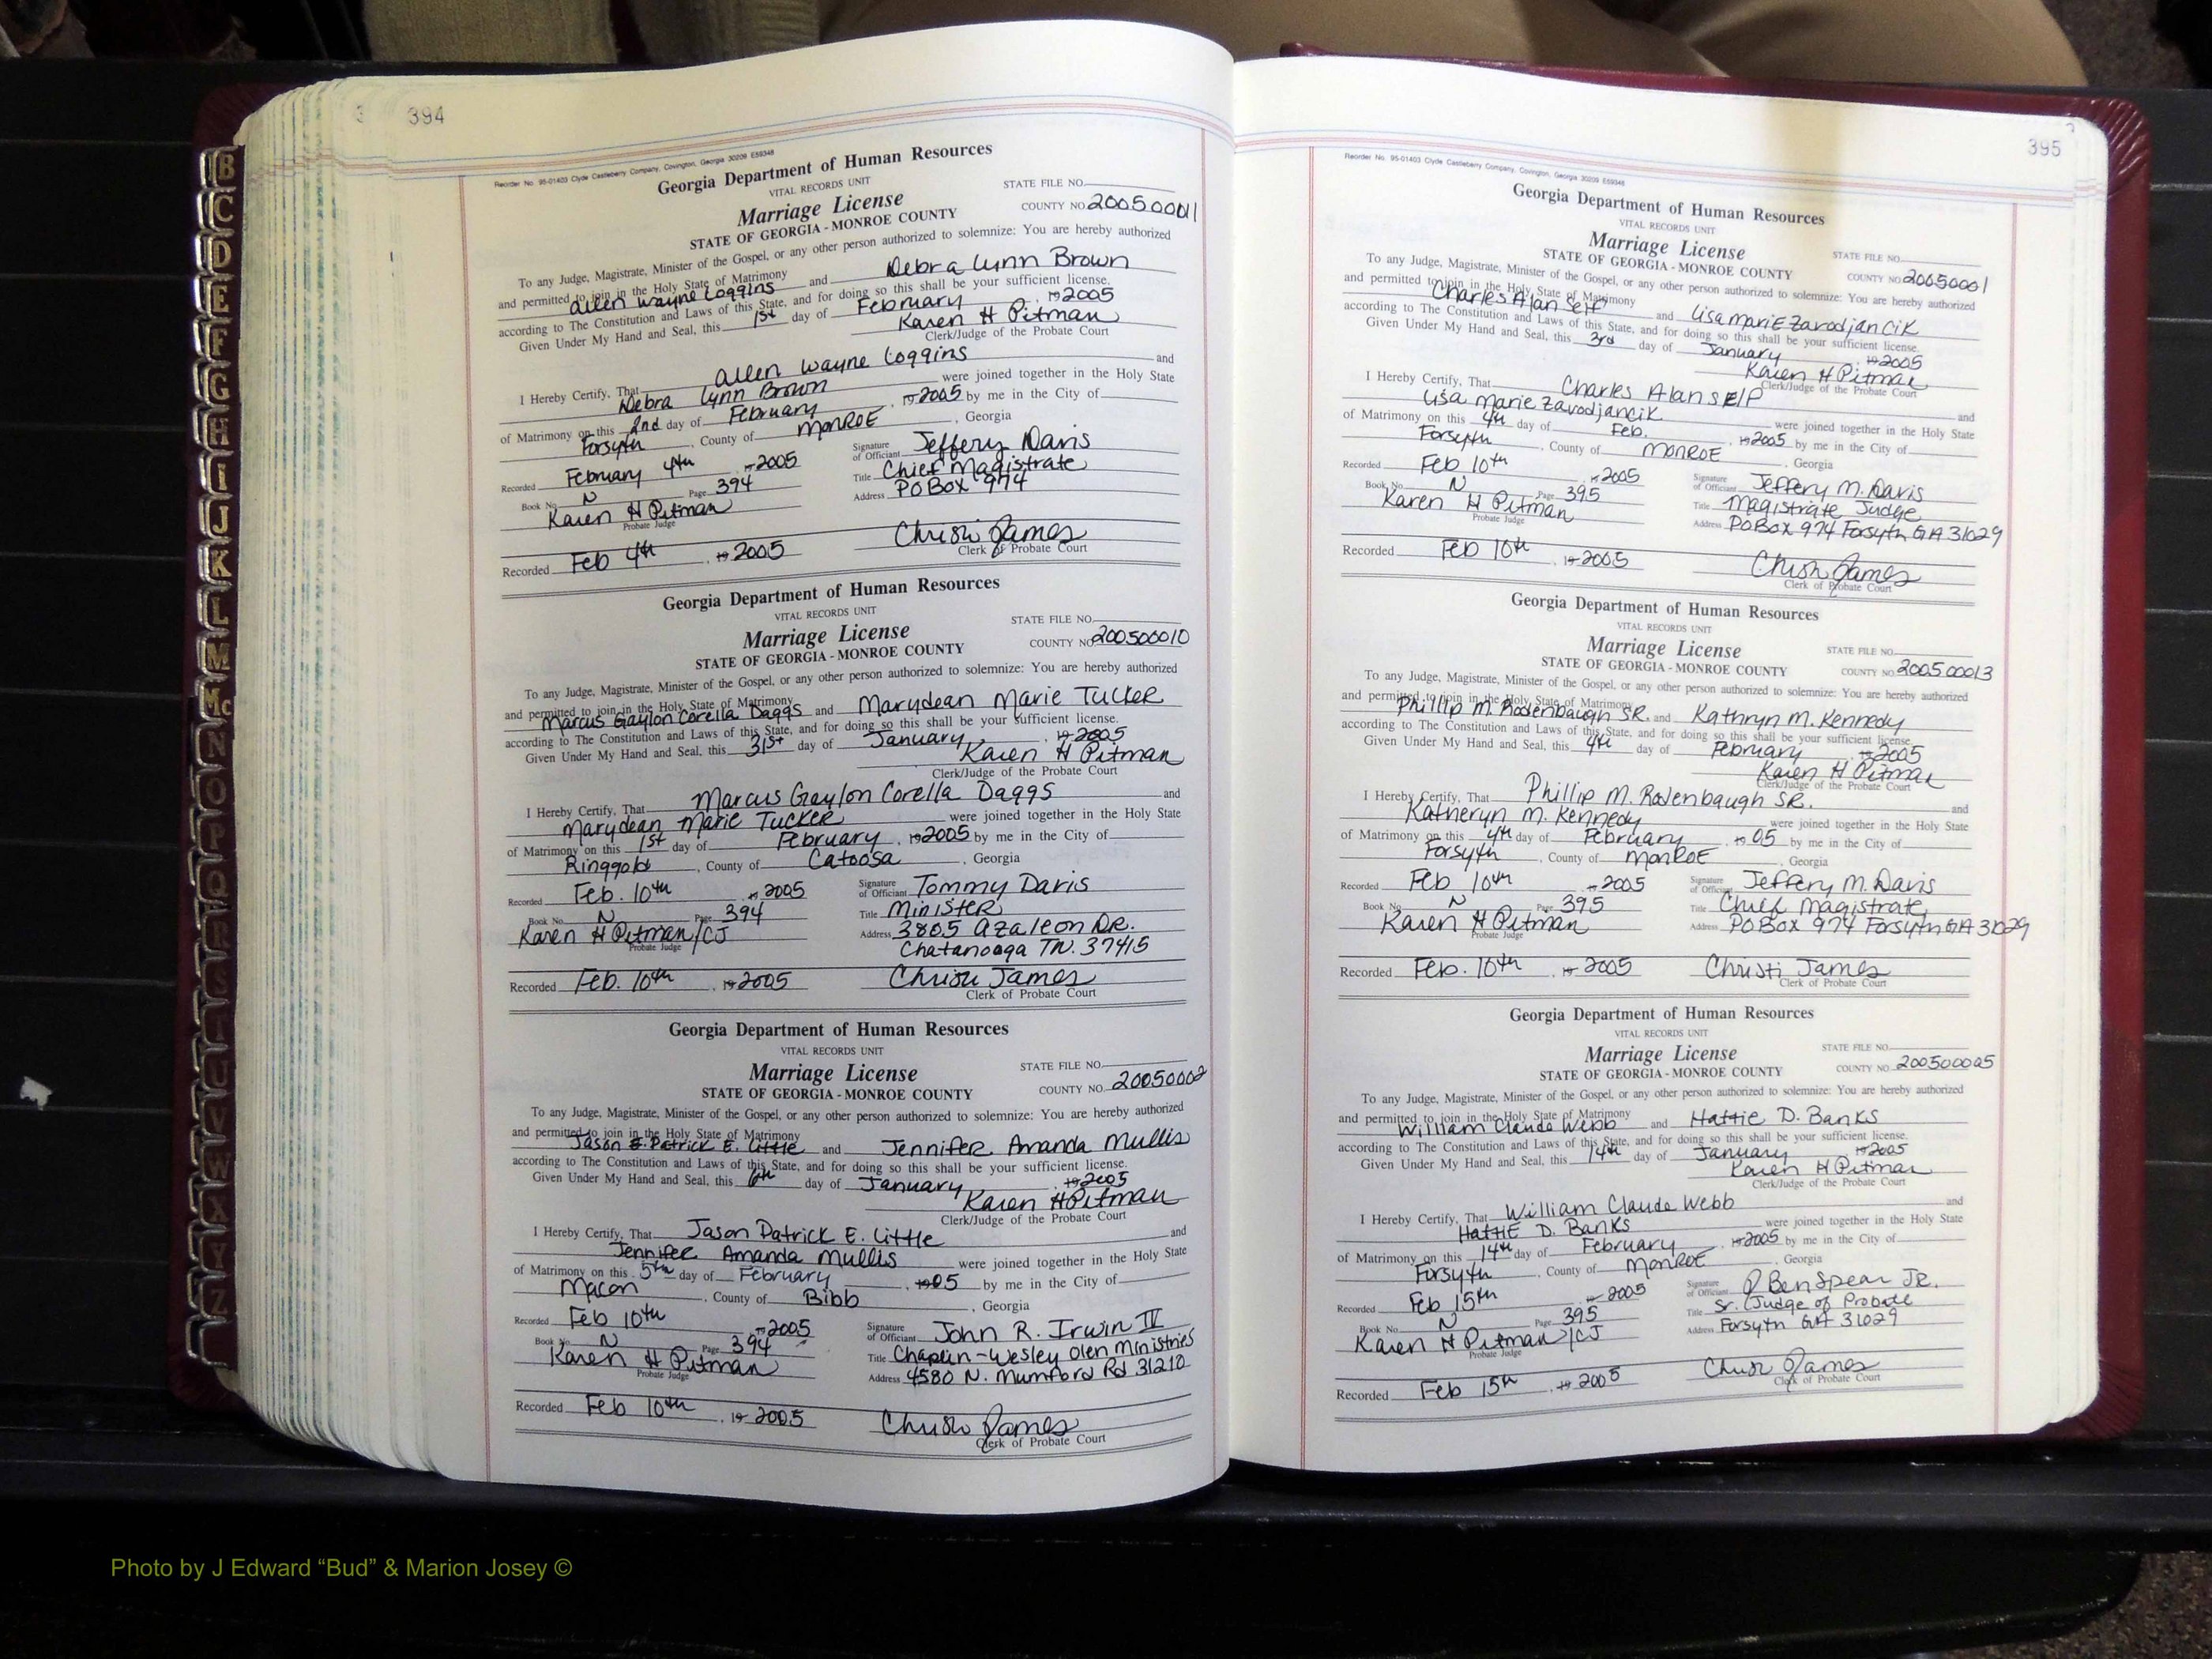 394
Reorder No. 95-01403 Clyde Castleberry Company, Covington, Georgia 30209 E59348
Georgia Department of Human Resources
VITAL RECORDS UNIT
Marriage License
STATE OF GEORGIA - MONROE COUNTY
STATE FILE NO.
COUNTY NO. 200500011
To any Judge, Magistrate, Minister of the Gospel, or any other person authorized to solemnize: You are hereby authorized
and permitted to join in the Holy State of Matrimony
Allen Wayne Loggins and Debra Lynn Brown
according to The Constitution and Laws of this State, and for doing so this shall be your sufficient license.
Given Under My Hand and Seal, this 1st day of February, 19 2005
Karen H Pitman
Clerk/Judge of the Probate Court
I Hereby Certify, That Allen Wayne Loggins and
Debra Lynn Brown were joined together in the Holy State
of Matrimony on this 2nd day of February, 19 2005 by me in the City of
Forsyth, County of MonRoE, Georgia
Recorded February 4th 19 2005
Book No. N Page 394
Karen H Pitman
Probate Judge
Signature of Officiant Jeffery Davis
Title Chief Magistrate
Address PO Box 974
Recorded Feb 4th, 19 2005
Christi James
Clerk of Probate Court
Georgia Department of Human Resources
VITAL RECORDS UNIT
Marriage License
STATE OF GEORGIA - MONROE COUNTY
STATE FILE NO.
COUNTY NO. 200500010
To any Judge, Magistrate, Minister of the Gospel, or any other person authorized to solemnize: You are hereby authorized
and permitted to join in the Holy State of Matrimony
Marcus Gaylon Corella Daggs and Marydean Marie Tucker
according to The Constitution and Laws of this State, and for doing so this shall be your sufficient license.
Given Under My Hand and Seal, this 31st day of January, 19 2005
Karen H Pitman
Clerk/Judge of the Probate Court
I Hereby Certify, That Marcus Gaylon Corella Daggs and
Marydean Marie Tucker were joined together in the Holy State
of Matrimony on this 1st day of February, 19 2005 by me in the City of
Ringgold, County of Catoosa, Georgia
Recorded Feb. 10th 19 2005
Book No. N Page 394
Karen H Pitman/CJ
Probate Judge
Signature of Officiant Tommy Davis
Title Minister
Address 3805 Azaleon DR.
Chatanooga TN. 37415
Recorded Feb. 10th, 19 2005
Christi James
Clerk of Probate Court
Georgia Department of Human Resources
VITAL RECORDS UNIT
Marriage License
STATE OF GEORGIA - MONROE COUNTY
STATE FILE NO.
COUNTY NO. 20050002
To any Judge, Magistrate, Minister of the Gospel, or any other person authorized to solemnize: You are hereby authorized
and permitted to join in the Holy State of Matrimony
Jason E. Patrick E. Little and Jennifer Amanda Mullis
according to The Constitution and Laws of this State, and for doing so this shall be your sufficient license.
Given Under My Hand and Seal, this 6th day of January, 19 2005
Karen H Pitman
Clerk/Judge of the Probate Court
I Hereby Certify, That Jason Patrick E. Little and
Jennifer Amanda Mullis were joined together in the Holy State
of Matrimony on this 5th day of February, 19 05 by me in the City of
Macon, County of Bibb, Georgia
Recorded Feb 10th 19 2005
Book No. N Page 394
Karen H Pitman
Probate Judge
Signature of Officiant John R. Irwin IV
Title Chaplin-Wesley Olen Ministries
Address 4580 N. Mumford Rd 31210
Recorded Feb 10th, 19 2005
Christi James
Clerk of Probate Court
395
Reorder No. 95-01403 Clyde Castleberry Company, Covington, Georgia 30209 E59348
Georgia Department of Human Resources
VITAL RECORDS UNIT
Marriage License
STATE OF GEORGIA - MONROE COUNTY
STATE FILE NO.
COUNTY NO. 20050001
To any Judge, Magistrate, Minister of the Gospel, or any other person authorized to solemnize: You are hereby authorized
and permitted to join in the Holy State of Matrimony
Charles Alan Self and Lisa Marie Zavodjancik
according to The Constitution and Laws of this State, and for doing so this shall be your sufficient license.
Given Under My Hand and Seal, this 3rd day of January, 19 2005
Karen H Pitman
Clerk/Judge of the Probate Court
I Hereby Certify, That Charles Alan Self and
Lisa Marie Zavodjancik were joined together in the Holy State
of Matrimony on this 4th day of Feb., 19 2005 by me in the City of
Forsyth, County of MonRoE, Georgia
Recorded Feb 10th 19 2005
Book No. N Page 395
Karen H Pitman
Probate Judge
Signature of Officiant Jeffery M. Davis
Title Magistrate Judge
Address PO Box 974 Forsyth GA 31029
Recorded Feb 10th, 19 2005
Christi James
Clerk of Probate Court
Georgia Department of Human Resources
VITAL RECORDS UNIT
Marriage License
STATE OF GEORGIA - MONROE COUNTY
STATE FILE NO.
COUNTY NO. 200500013
To any Judge, Magistrate, Minister of the Gospel, or any other person authorized to solemnize: You are hereby authorized
and permitted to join in the Holy State of Matrimony
Phillip M. Rodenbaugh SR. and Kathryn M. Kennedy
according to The Constitution and Laws of this State, and for doing so this shall be your sufficient license.
Given Under My Hand and Seal, this 4th day of February, 19 2005
Karen H Pitman
Clerk/Judge of the Probate Court
I Hereby Certify, That Phillip M. Rodenbaugh SR. and
Katheryn M. Kennedy were joined together in the Holy State
of Matrimony on this 4th day of February, 19 05 by me in the City of
Forsyth, County of MonRoE, Georgia
Recorded Feb 10th 19 2005
Book No. N Page 395
Karen H Pitman
Probate Judge
Signature of Officiant Jeffery M. Davis
Title Chief Magistrate
Address PO Box 974 Forsyth GA 31029
Recorded Feb. 10th, 19 2005
Christi James
Clerk of Probate Court
Georgia Department of Human Resources
VITAL RECORDS UNIT
Marriage License
STATE OF GEORGIA - MONROE COUNTY
STATE FILE NO.
COUNTY NO. 200500005
To any Judge, Magistrate, Minister of the Gospel, or any other person authorized to solemnize: You are hereby authorized
and permitted to join in the Holy State of Matrimony
William Claude Webb and Hattie D. Banks
according to The Constitution and Laws of this State, and for doing so this shall be your sufficient license.
Given Under My Hand and Seal, this 14th day of January, 19 2005
Karen H Pitman
Clerk/Judge of the Probate Court
I Hereby Certify, That William Claude Webb and
Hattie D. Banks were joined together in the Holy State
of Matrimony on this 14th day of February, 19 2005 by me in the City of
Forsyth, County of MonRoE, Georgia
Recorded Feb 15th 19 2005
Book No. N Page 395
Karen H Pitman/CJ
Probate Judge
Signature of Officiant Ben Spear JR.
Title Sr. Judge of Probate
Address Forsyth GA 31029
Recorded Feb 15th, 19 2005
Christi James
Clerk of Probate Court
B
C
D
E
F
G
H
I
J
K
L
M
Mc
N
O
P
Q
R
S
T
U
V
W
X
Y
Z
Photo by J Edward “Bud” & Marion Josey ©